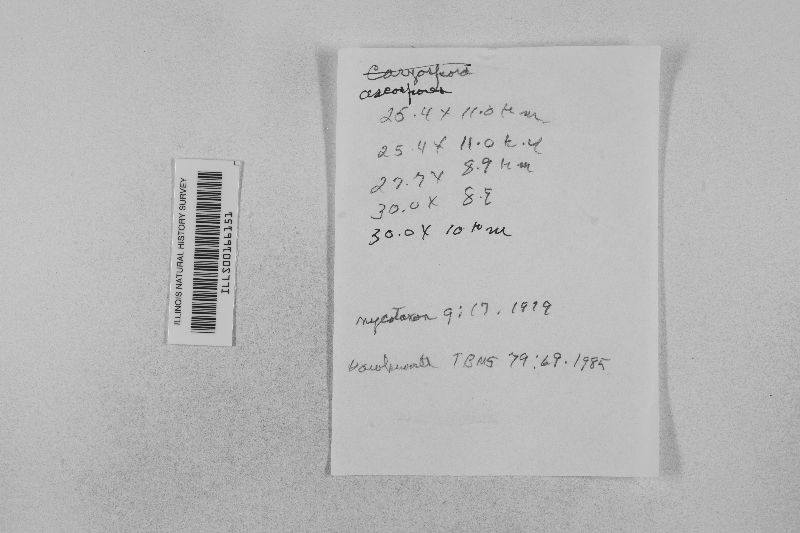 ascospores
25.4 X 11.0 µm
25.4 X 11.0 µm
27.7 X 8.9 µm
30.0 X 8.9
30.0 X 10 µm
mycotaxon 9:17. 1979
Hawksworth TBMS 79:69. 1982
ILLINOIS NATURAL HISTORY SURVEY
ILLS00166151